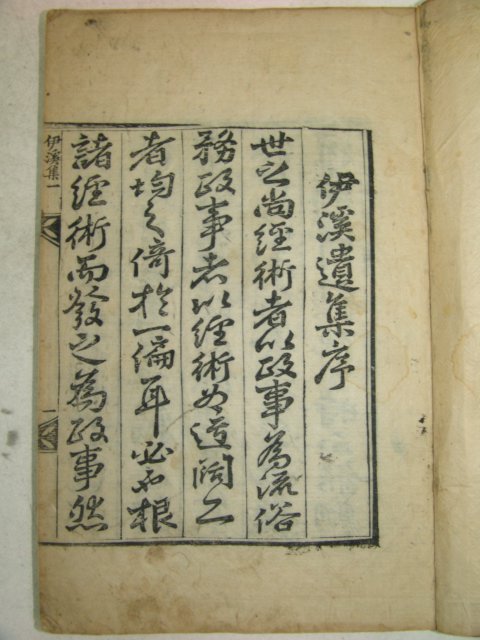 伊溪遺集序
世之尚經術者以政事為流俗
務政事者以經術為迂闊二
者均之倚於一偏耳必根
諸經術而發之為政事然
伊溪集一
一